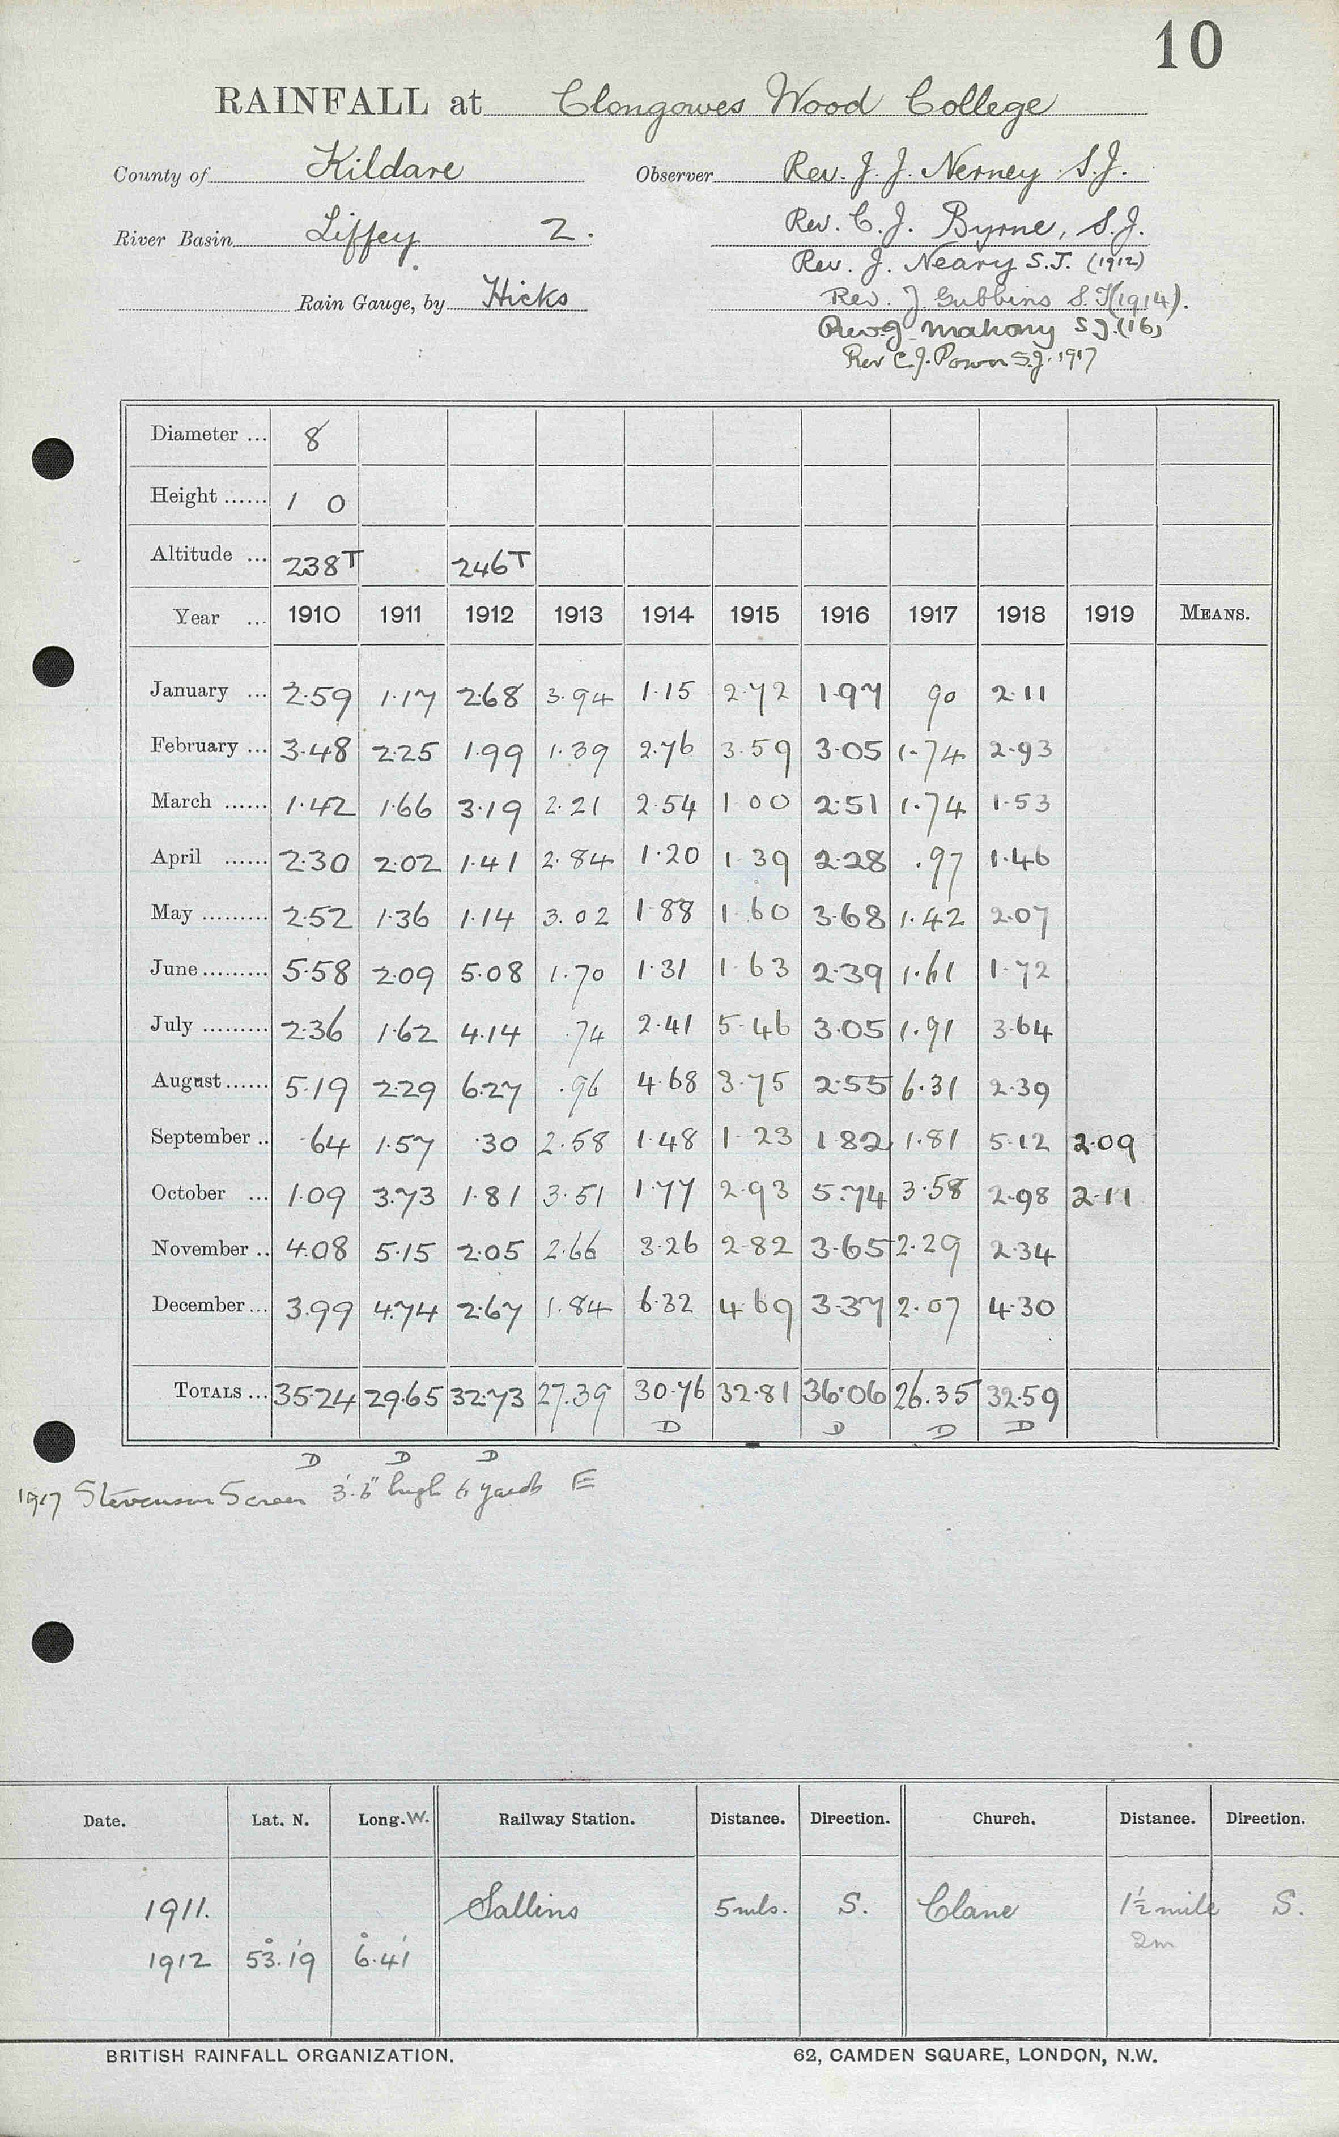 10
RAINFALL at Clongowes Wood College
County of Kildare Observer Rev. J. J. Nerney S.J.
River Basin Liffey 2. Rev. C. J. Byrne, S.J.
Rev. J. Neary S.J. (1912)
Rain Gauge, by Hicks Rev. J Gubbins S.J (1914).
Rev. J Mahony S J. (16)
Rev C. J. Power S.J. 1917
Diameter ... 8
Height ...... 1 0
Altitude ... 238T 246T
Year ... 1910 1911 1912 1913 1914 1915 1916 1917 1918 1919 MEANS.
January ... 2.59 1.17 2.68 3.94 1.15 2.72 1.97 90 2.11
February ... 3.48 2.25 1.99 1.39 2.76 3.59 3.05 1.74 2.93
March ...... 1.42 1.66 3.19 2.21 2.54 1.00 2.51 1.74 1.53
April ...... 2.30 2.02 1.41 2.84 1.20 1.39 2.28 .97 1.46
May ......... 2.52 1.36 1.14 3.02 1.88 1.60 3.68 1.42 2.07
June ......... 5.58 2.09 5.08 1.70 1.31 1.63 2.39 1.61 1.72
July ......... 2.36 1.62 4.14 .74 2.41 5.46 3.05 1.91 3.64
August ...... 5.19 2.29 6.27 .96 4.68 3.75 2.55 6.31 2.39
September .. .64 1.57 .30 2.58 1.48 1.23 1.82 1.81 5.12 2.09
October ... 1.09 3.73 1.81 3.51 1.77 2.93 5.74 3.58 2.98 2.11
November .. 4.08 5.15 2.05 2.66 3.26 2.82 3.65 2.29 2.34
December ... 3.99 4.74 2.67 1.84 6.32 4.69 3.37 2.07 4.30
TOTALS ... 35.24 29.65 32.73 27.39 30.76 32.81 36.06 26.35 32.59
D D D D
D D D
1917 Stevenson Screen 3'.6" high 6 yards E
Date. Lat. N. Long. W. Railway Station. Distance. Direction. Church. Distance. Direction.
1911. Sallins 5 mls. S. Clane 1½ mile S.
2m
1912 53°.19' 6°.41'
BRITISH RAINFALL ORGANIZATION. 62, CAMDEN SQUARE, LONDON, N.W.